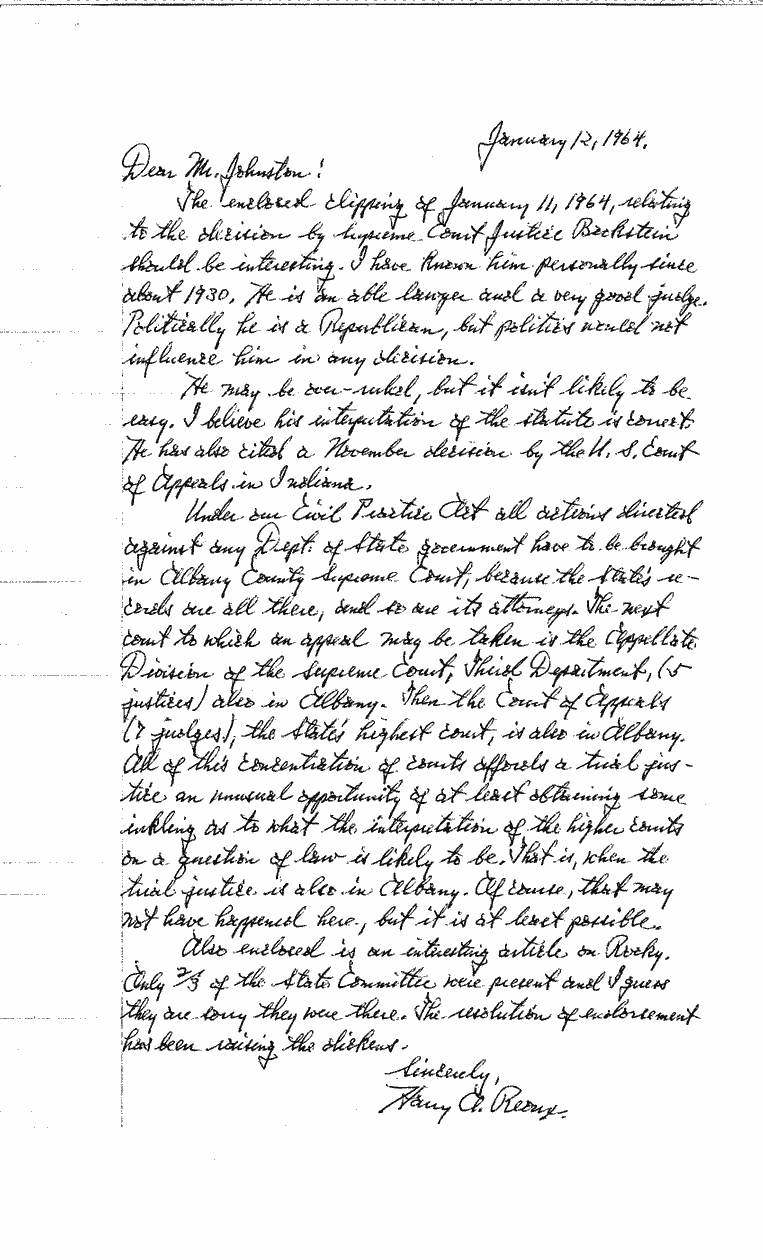 January 12, 1964.
Dear Mr. Johnston:
The enclosed clipping of January 11, 1964, relating
to the decision by Supreme Court Justice Bookstein
should be interesting. I have known him personally since
about 1930. He is an able lawyer and a very good judge.
Politically he is a Republican, but politics would not
influence him in any decision.
He may be over-ruled, but it isn't likely to be
easy. I believe his interpretation of the statute is correct.
He has also cited a November decision by the U. S. Court
of Appeals in Indiana.
Under our Civil Practice Act all actions directed
against any Dept. of State government have to be brought
in Albany County Supreme Court, because the State's re-
cords are all there, and so are its attorneys. The next
court to which an appeal may be taken is the Appellate
Division of the Supreme Court, Third Department, (5
justices) also in Albany. Then the Court of Appeals
(7 judges), the State's highest court, is also in Albany.
All of this concentration of courts affords a trial jus-
tice an unusual opportunity of at least obtaining some
inkling as to what the interpretation of the higher courts
on a question of law is likely to be. That is, when the
trial justice is also in Albany. Of course, that may
not have happened here, but it is at least possible.
Also enclosed is an interesting article on Rocky.
Only 2/3 of the State Committee were present and I guess
they are sorry they were there. The resolution of endorsement
has been raising the dickens.
Sincerely,
Harry A. Reoux.